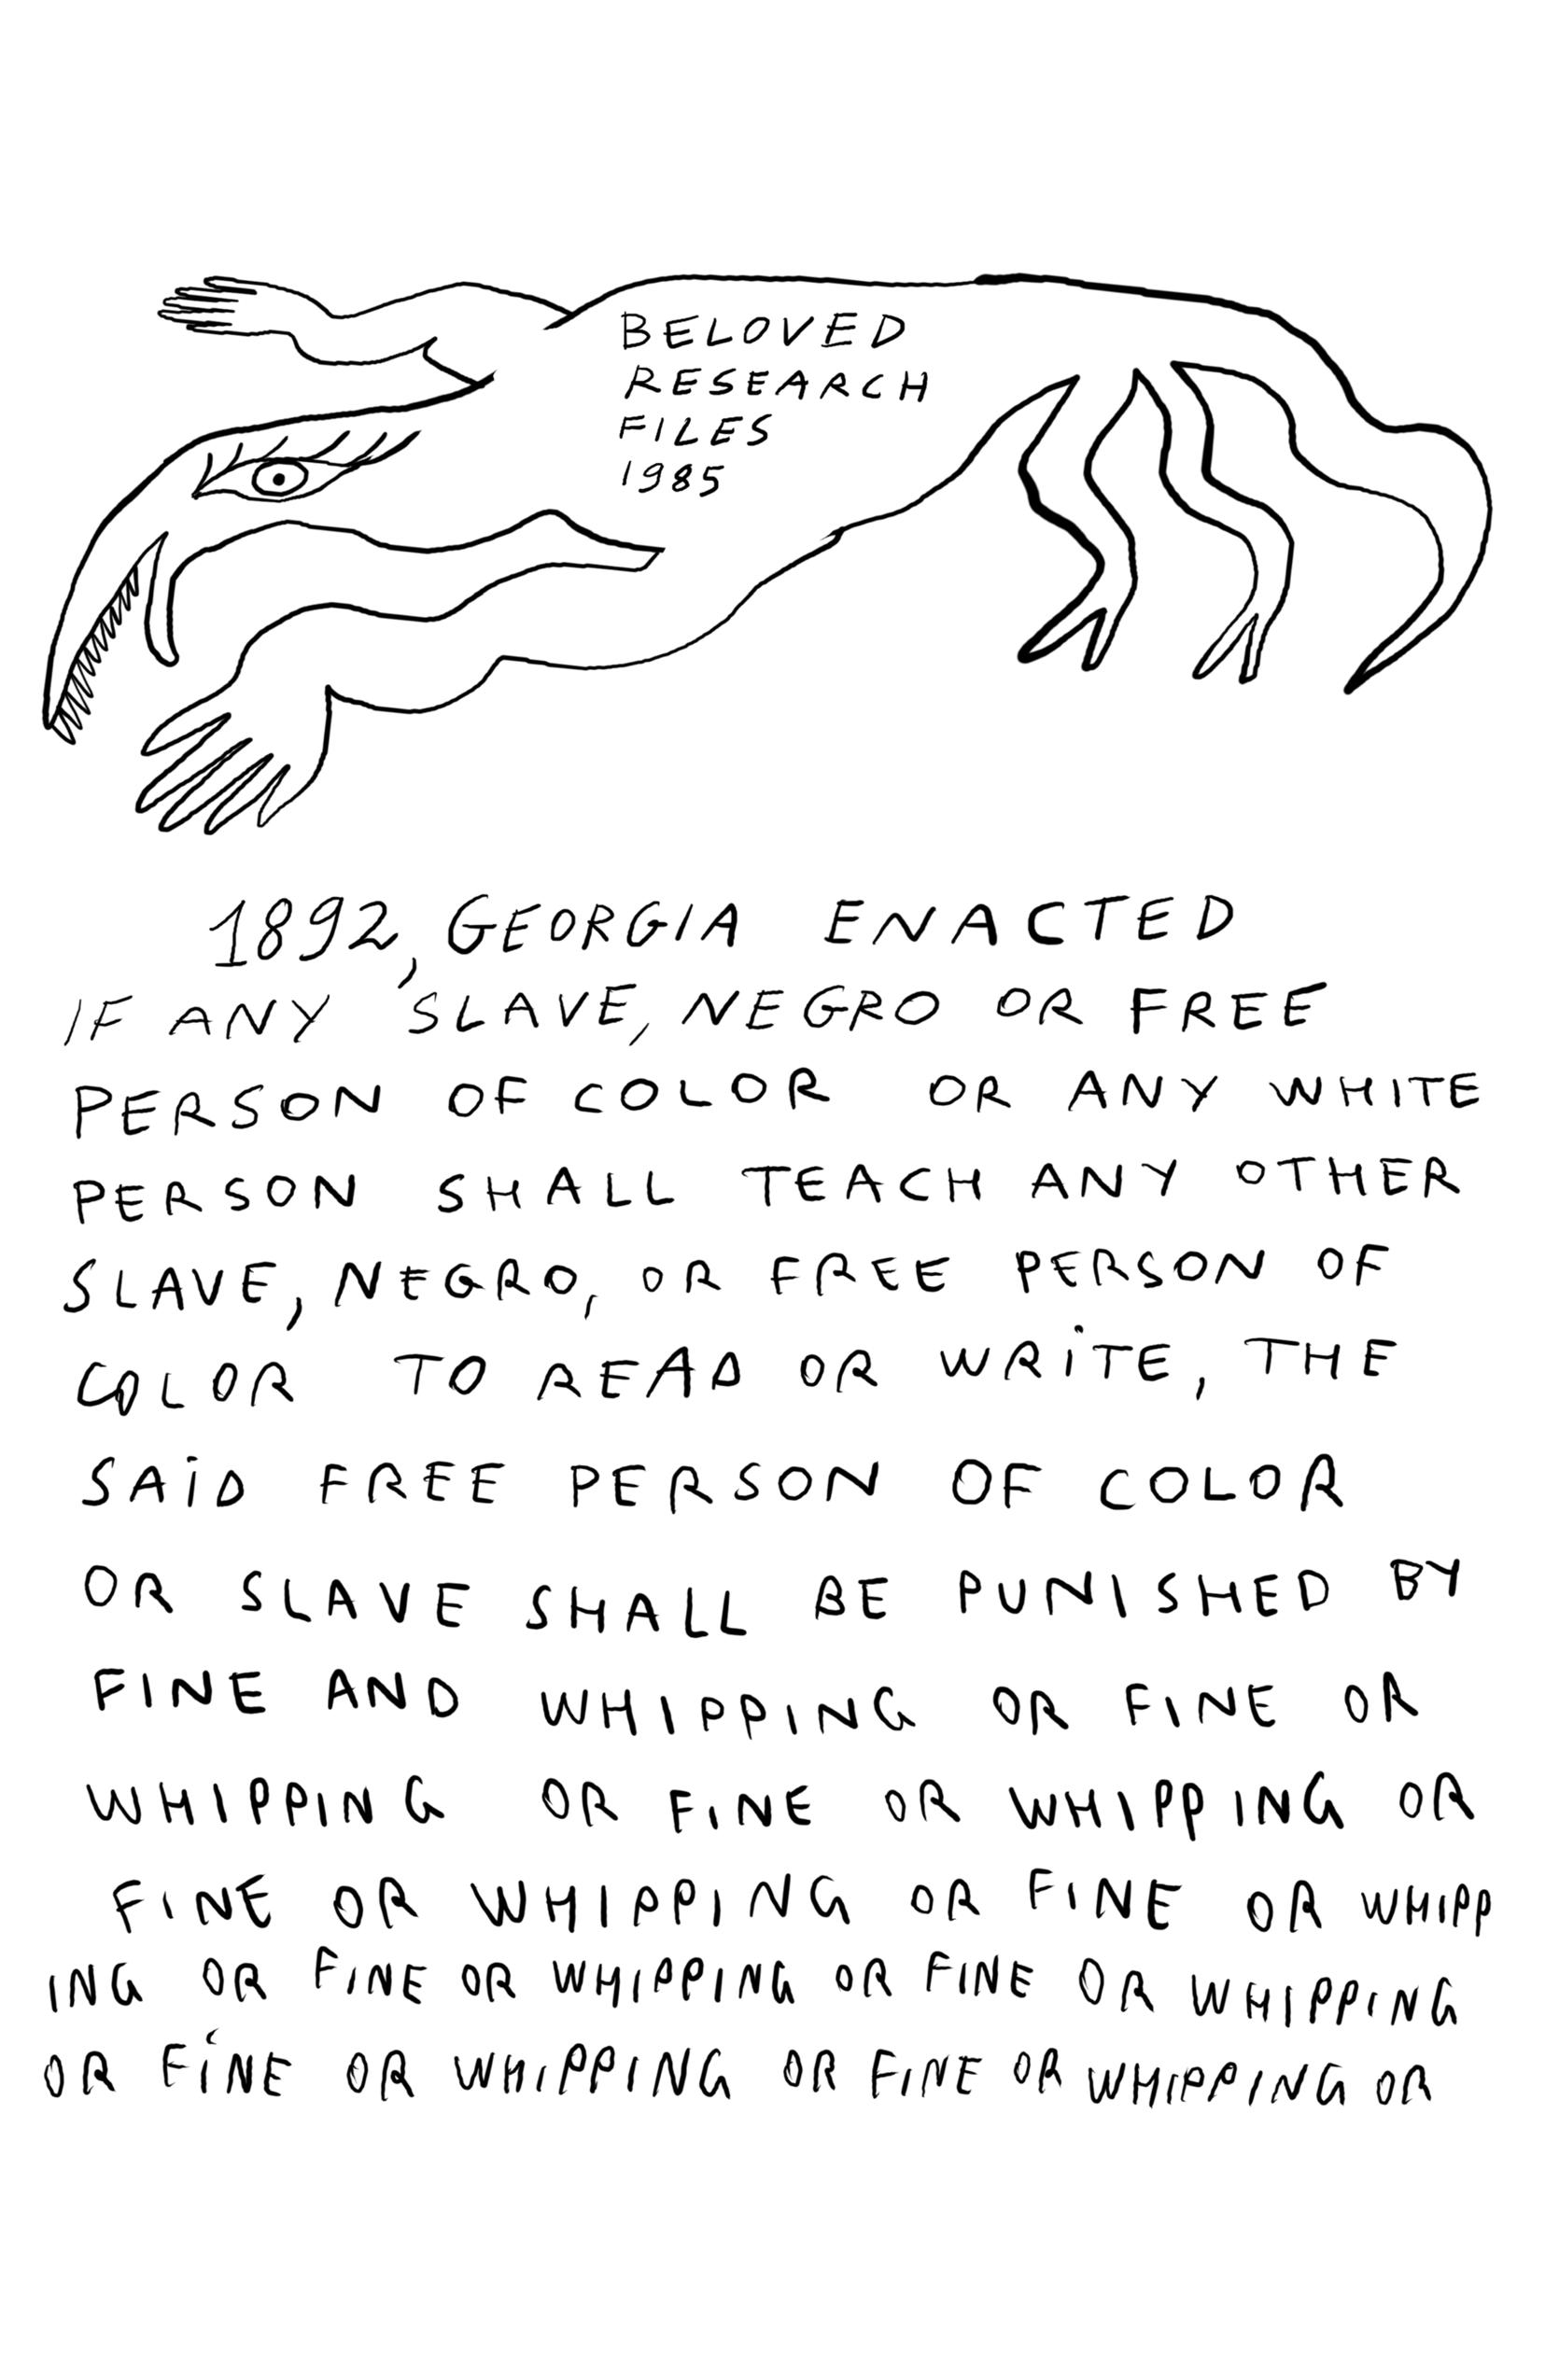 BELOVED
RESEARCH
FILES
1985
1892, GEORGIA ENACTED
IF ANY 'SLAVE, NEGRO OR FREE
PERSON OF COLOR OR ANY WHITE
PERSON SHALL TEACH ANY OTHER
SLAVE, NEGRO, OR FREE PERSON OF
COLOR TO READ OR WRITE, THE
SAID FREE PERSON OF COLOR
OR SLAVE SHALL BE PUNISHED BY
FINE AND WHIPPING OR FINE OR
WHIPPING OR FINE OR WHIPPING OR
FINE OR WHIPPING OR FINE OR WHIPP
ING OR FINE OR WHIPPING OR FINE OR WHIPPING
OR FINE OR WHIPPING OR FINE OR WHIPPING OR